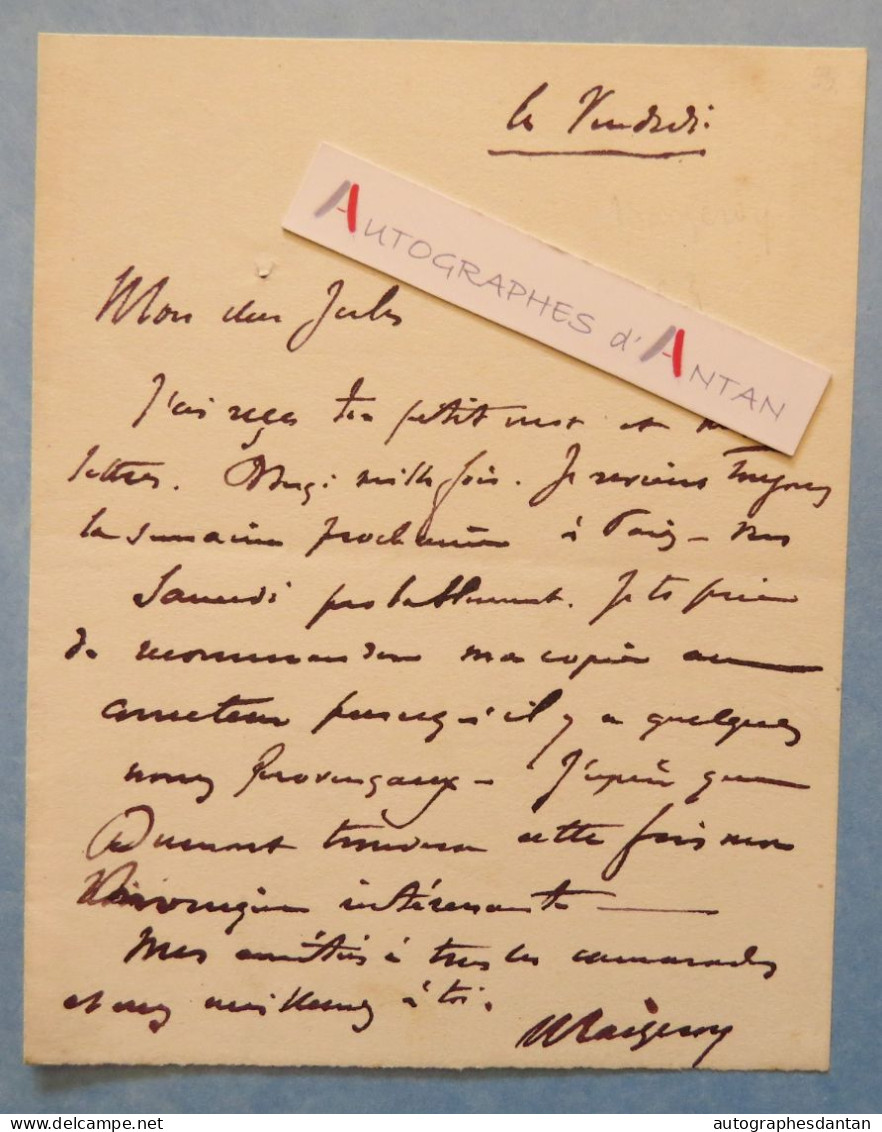 Ce Vendredi.
AUTOGRAPHES d'ANTAN
Mon cher Jules
J'ai reçu ton petit mot et
lettres. Merci mille fois. Je reviens toujours
la semaine prochaine à Paris –
Samedi probablement. Je te prie
de recommander ma copie au
correcteur puisqu'il y a quelques
noms provençaux – J'espère que
Dumont trouvera cette fois mon
intéressante
Mes amitiés à tous les camarades
et mes meilleures à toi.
delcampe.net
autographesdantan